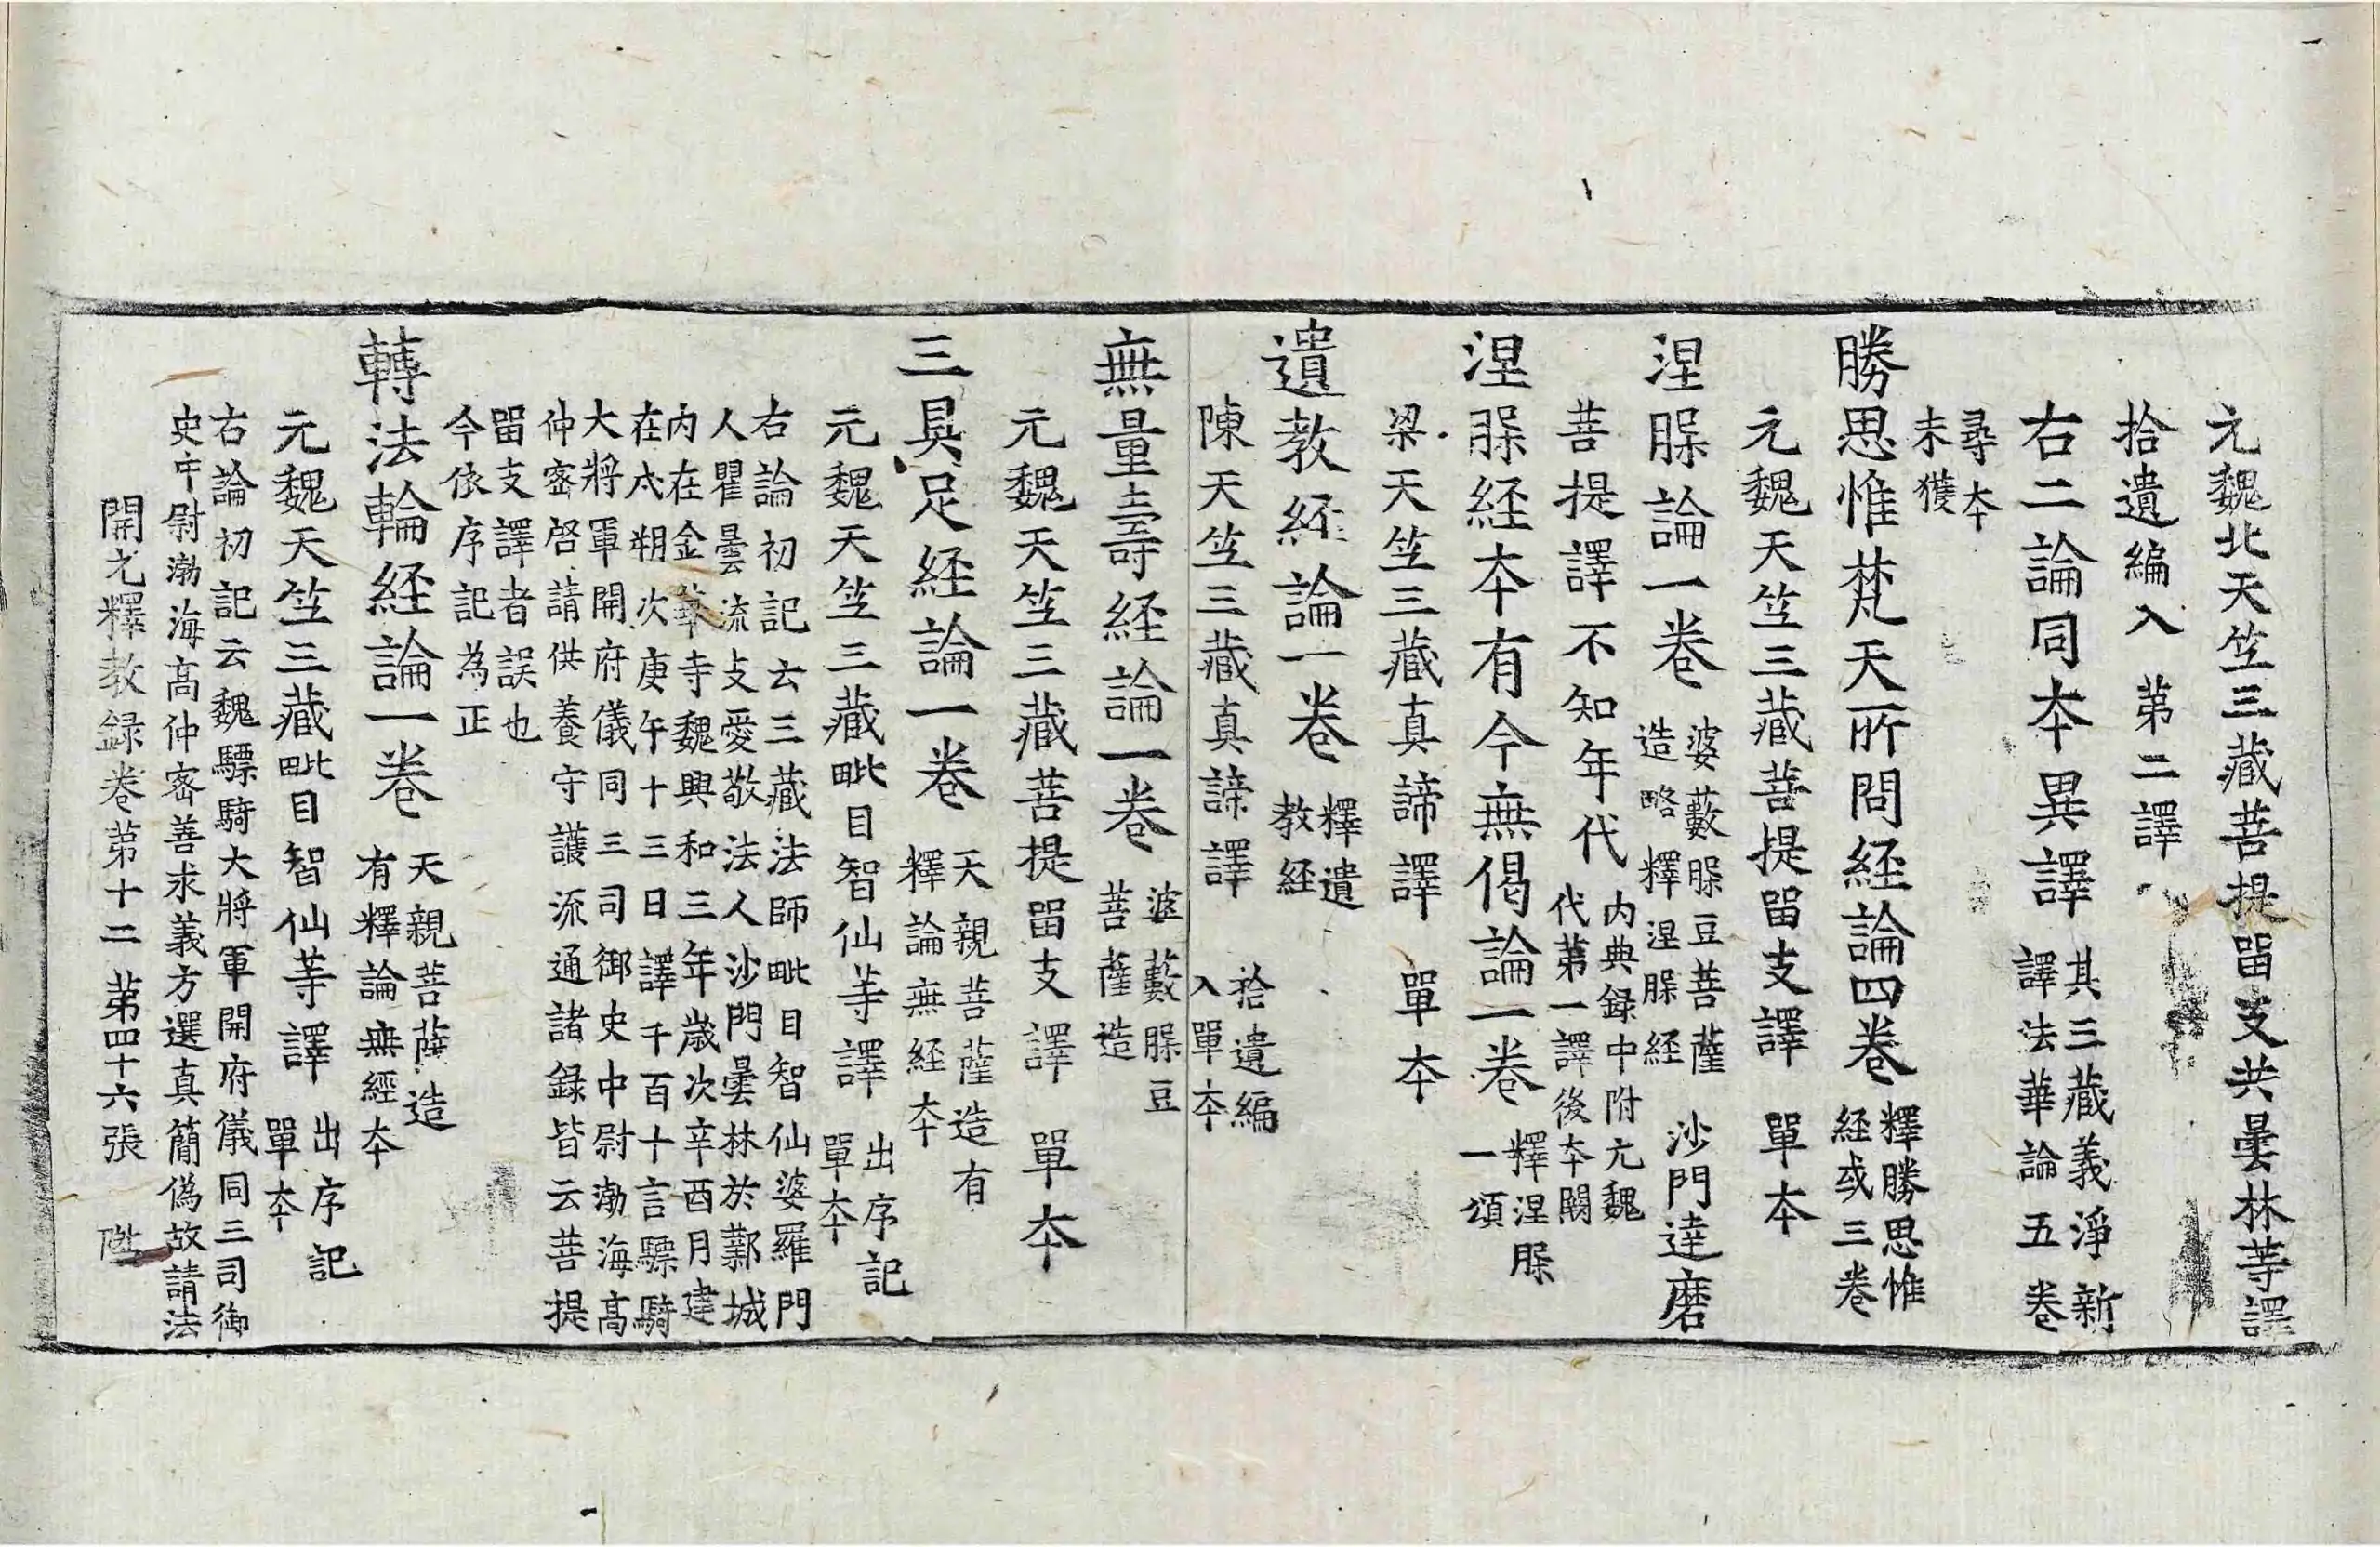 元魏北天笁三藏菩提留支共曇林等譯
拾遺編入　第二譯
右二論同夲異譯　其三藏義淨新
譯法華論五卷
尋夲
未獲
勝思惟梵天所問経論四卷　釋勝思惟
経或三卷
元魏天笁三藏菩提留支譯　單夲
涅脲論一卷　婆藪脲豆菩薩
造略釋涅脲経　沙門達磨
菩提譯不知年代　内典録中附元魏
代第一譯後夲闕
涅脲経夲有今無偈論一卷　釋涅脲
一頌
梁天笁三藏真諦譯　單夲
遺教経論一卷　釋遺
教経
陳天笁三藏真諦譯　拾遺編
入單夲
無量壽経論一卷　婆藪脲豆
菩薩造
元魏天笁三藏菩提留支譯　單夲
三具足経論一卷　天親菩薩造有
釋論無経夲
元魏天笁三藏毗目智仙等譯　出序記
單夲
右論初記云三藏法師毗目智仙婆羅門
人瞿曇流支愛敬法人沙門曇林於鄴城
内在金華寺魏興和三年歲次辛酉月建
在戌朔次庚午十三日譯千百十言驃騎
大將軍開府儀同三司御史中尉渤海高
仲密啓請供養守護流通諸録皆云菩提
留支譯者誤也
今依序記為正
轉法輪経論一卷　天親菩薩造
有釋論無經夲
元魏天笁三藏毗目智仙等譯　出序記
單夲
右論初記云魏驃騎大將軍開府儀同三司御
史中尉渤海高仲密善求義方選真簡偽故請法
開元釋教録卷第十二　第四十六張